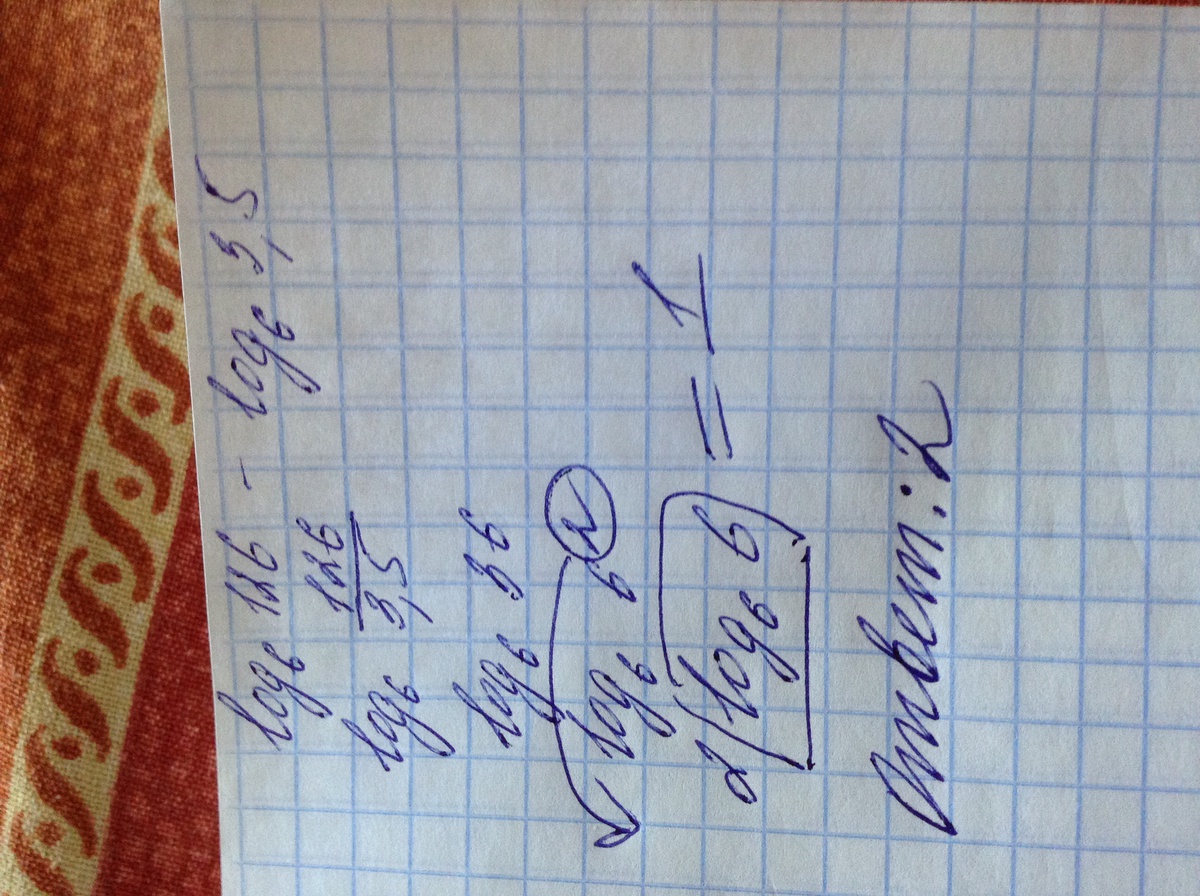 log₆ 126 - log₆ 3,5
log₆ 126/3,5
log₆ 36
log₆ 6²
2(log₆ 6) = 1
Ответ: 2